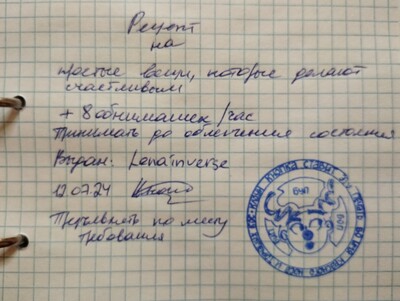 Рецепт
на
простые вещи, которые делают
счастливым
+ 8 обнимашек/час
Принимать до облегчения состояния
Выдан: Lenainverse
12.07.24
Предъявить по месту
требования